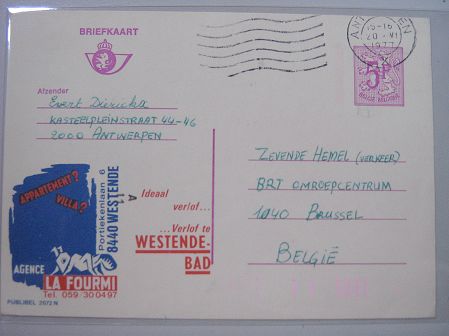 BRIEFKAART
Afzender
Evert Dierickx
KASTEELPLEINSTRAAT 44-46
2000 ANTWERPEN
15-16
20 - VI
1977
5F
BELGIE-BELGIQUE
ZEVENDE HEMEL (VERKEER)
BRT OMROEPCENTRUM
1040 BRUSSEL
BELGIË
APPARTEMENT?
VILLA?
Portiekenlaan 6
8440 WESTENDE
AGENCE
LA FOURMI
Tel. 059/300497
A
Ideaal
verlof...
...Verlof te
WESTENDE-
BAD
PUBLIBEL 2672 N